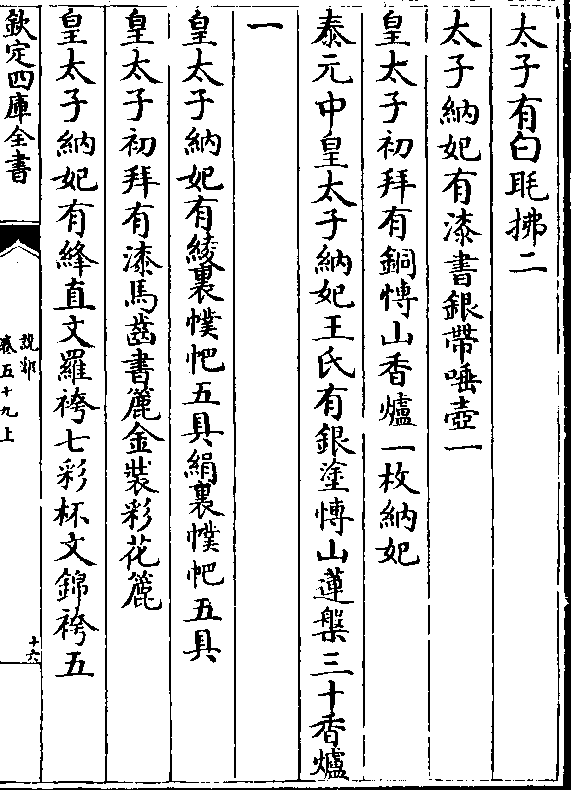 太子有白毦拂二
太子納妃有漆書銀帶唾壺一
皇太子初拜有銅愽山香爐一枚納妃
泰元中皇太子納妃王氏有銀塗愽山蓮槃三十香爐
一
皇太子納妃有綾裏幞帊五具絹裏幞帊五具
皇太子初拜有漆馬齒書簏金裝彩花簏
皇太子納妃有絳直文羅袴七彩杯文錦袴五
欽定四庫全書
說郛
卷五十九上
十六